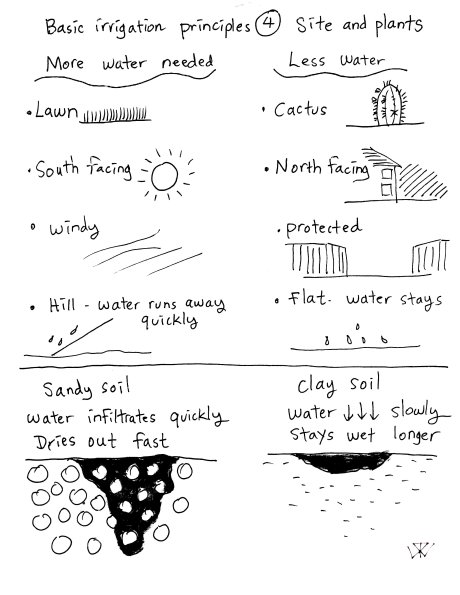 Basic irrigation principles 4 Site and plants
More water needed
Less water
• Lawn
• Cactus
• South facing
• North facing
• windy
• protected
• Hill - water runs away
quickly
• Flat - water stays
Sandy soil
water infiltrates quickly
Dries out fast
Clay soil
water ↓↓↓ slowly
Stays wet longer